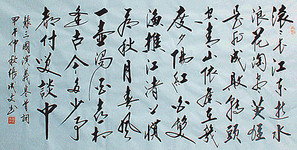 滚滚长江东逝水
浪花淘尽英雄
是非成败转头
空青山依旧在几
度夕阳红白发
渔樵江渚上惯
看秋月春风
一壶浊酒喜相
逢古今多少
事都付笑谈中
三國演義卷首词
甲午仲秋